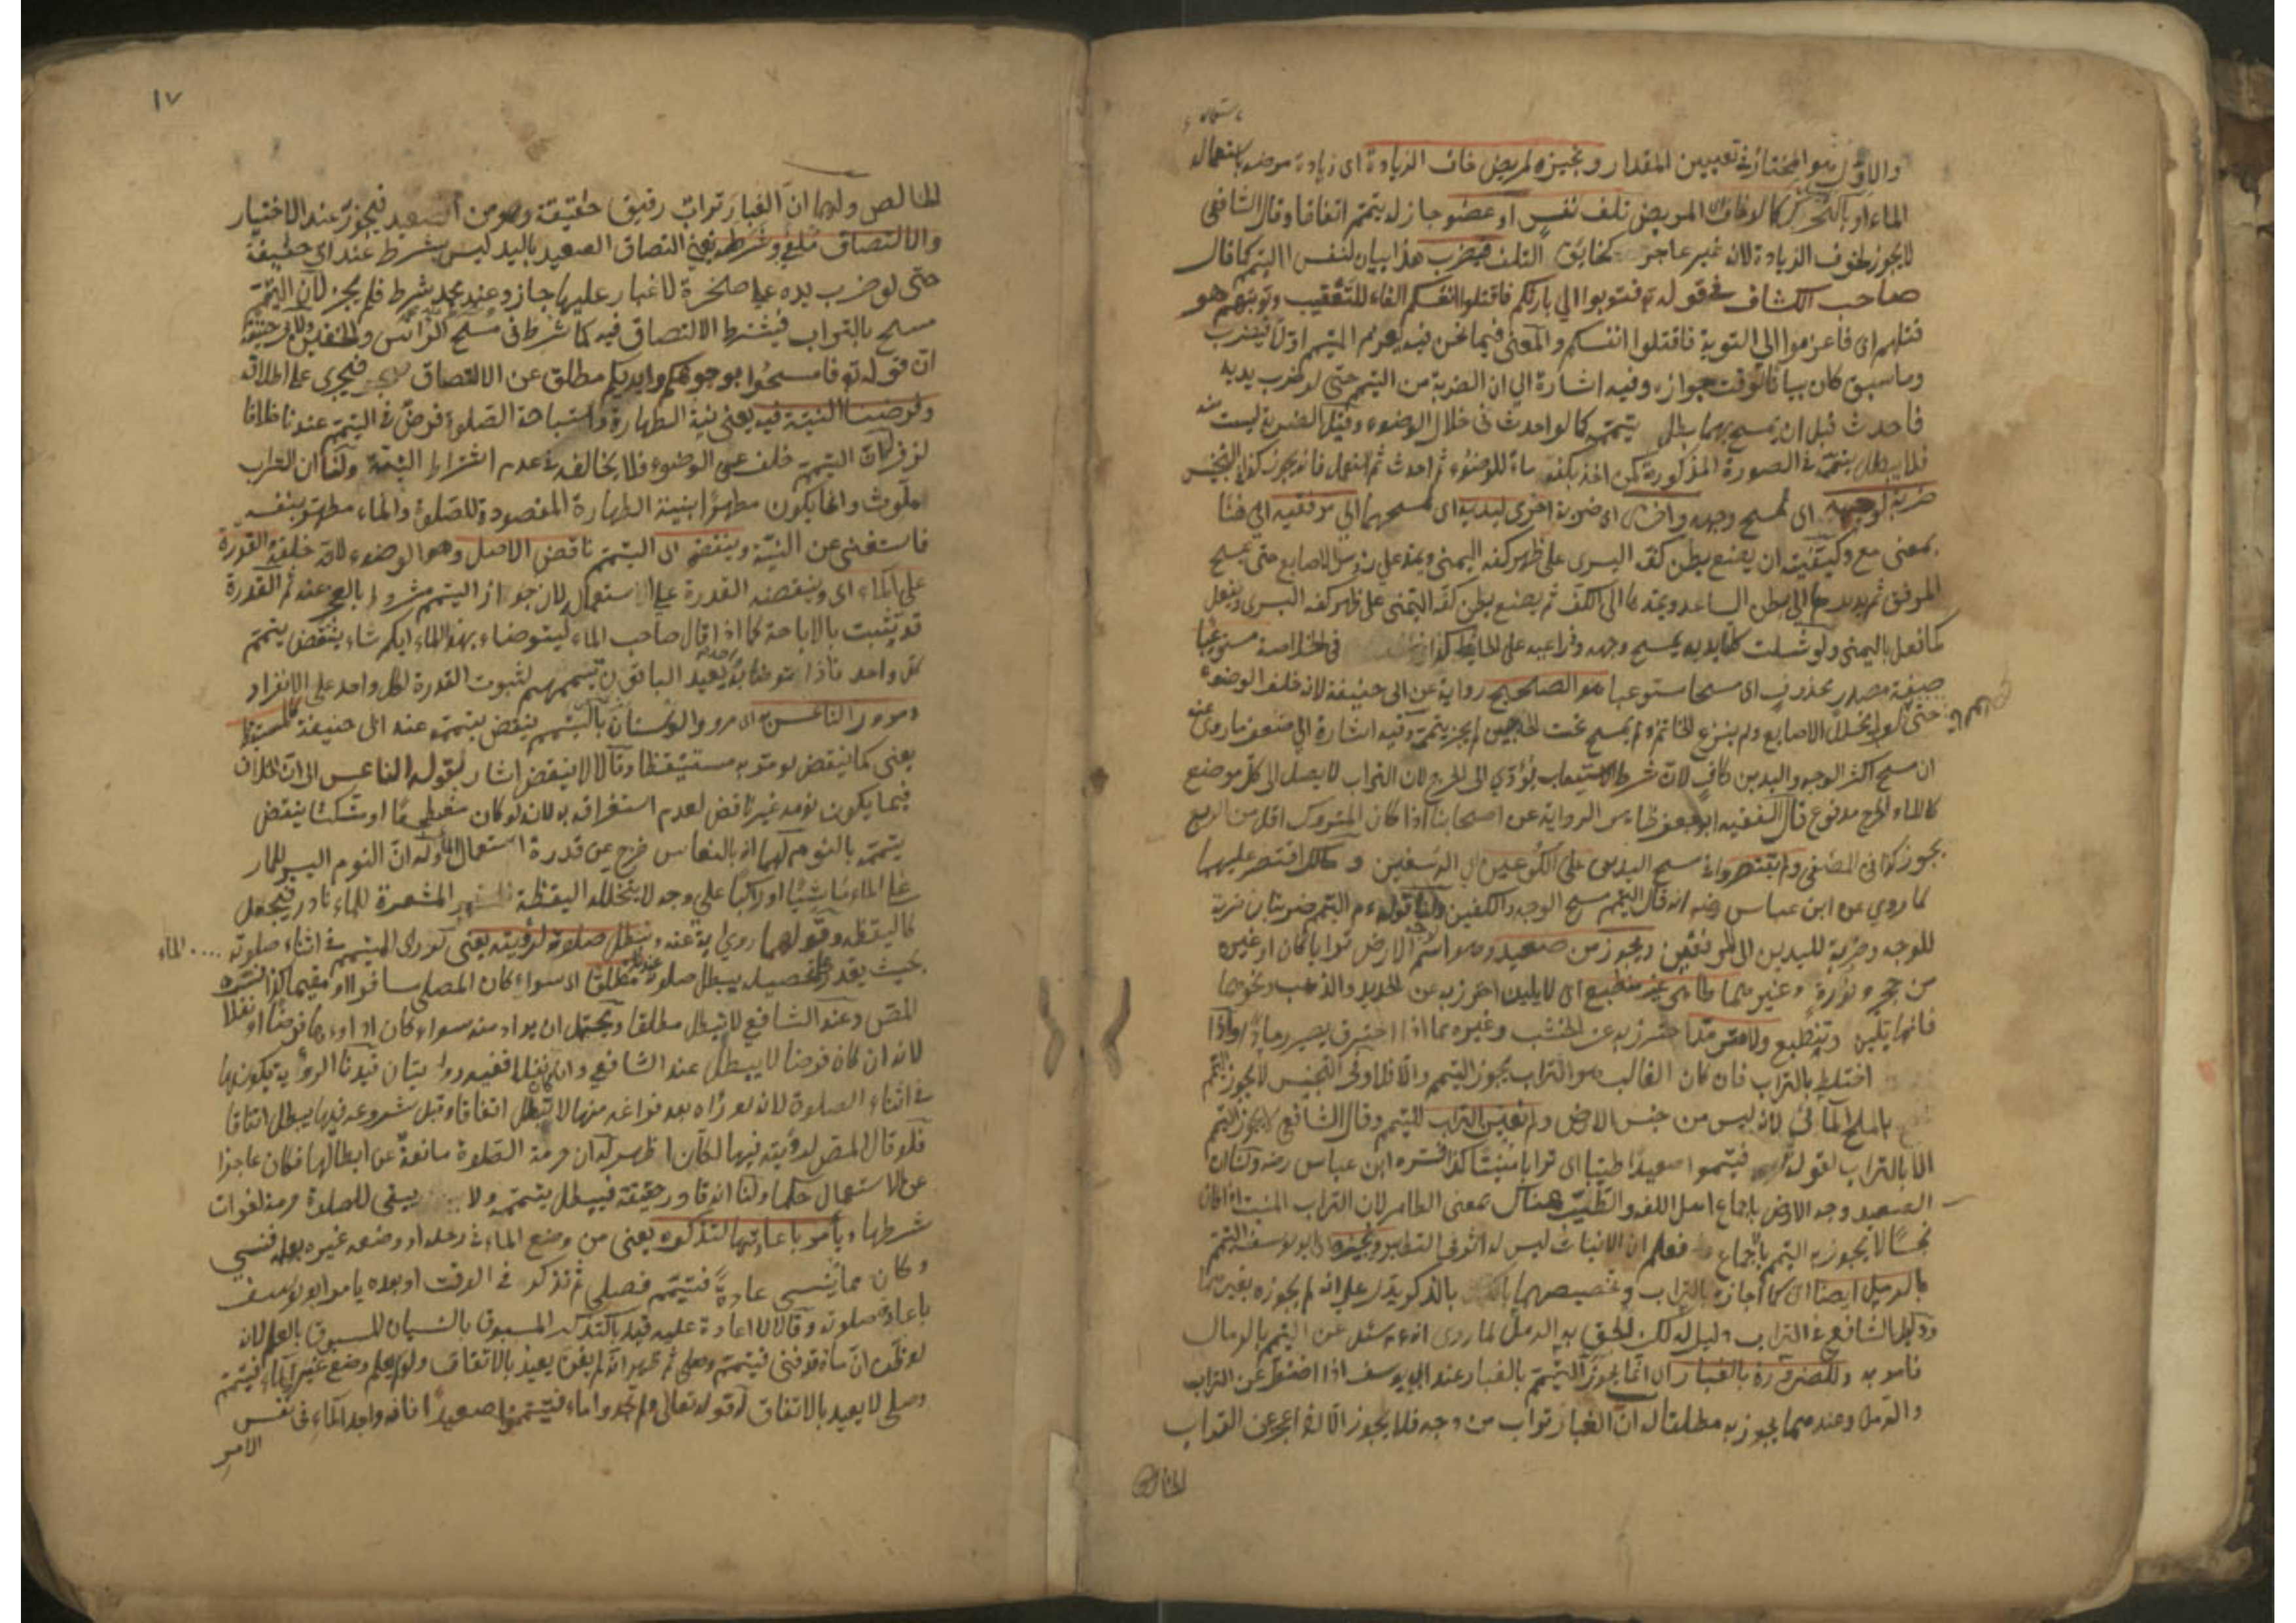 والاول هو المختار في تعيين المقدار ونجيزه لمريض خاف الزيادة اى زيادة مرضه باستعماله
الماء او بالتحرك كما لو خاف المريض تلف نفس او عضو جاز له يتمم اتفاقا وقال الشافعى
لا يجوز لخوف الزيادة لانه غير عاجز كخايف التلف فيضرب هذا بيان لنفس التيمم كما قال
صاحب الكشاف فى قوله تع فتوبوا الى بارئكم فاقتلوا انفسكم الفاء للتعقيب وتوبتهم هو
قتلهم اى فاعزموا الى التوبة فاقتلوا انفسكم والمعنى فيما نحن فيه يعزم المتيمم اولا فيضرب
وما سبق كان بيانا لوقت جوازه وفيه اشارة الى ان الضربة من التيمم حتى لو ضرب يديه
فاحدث قبل ان يمسح بهما بطل تيممه كما لو احدث فى خلال الوضوء وقيل الضربة ليست منه
فلا يبطل تيممه فى الصورة المذكورة كمن اخذ بكفه ماء للوضوء ثم احدث ثم استعمل فانه يجوز كذا فى التجنيس
ضربة لوجهه اى لمسح وجهه واخرى اى ضربة اخرى ليديه اى لمسحهما الى مرفقيه الى هنا
بمعنى مع وكيفيته ان يضع بطن كفه اليسرى على ظهر كفه اليمنى ويمد على رؤس الاصابع حتى يمسح
المرفق ثم يديرها الى بطن الساعد ويمدها الى الكف ثم يضع بطن كفه اليمنى على ظهر كفه اليسرى ويفعل
كما فعل باليمنى ولو شلت كلتا يديه يمسح وجهه وذراعيه على الحايط كذا فى الخلاصة مستوعبا
صفة مصدر محذوف اى مسحا مستوعبا هو الصحيح رواية عن ابى حنيفة لانه خلف الوضوء
حتى لو لم يخلل الاصابع ولم ينزع الخاتم ولم يمسح تحت الحاجبين لم يجز تيممه وفيه اشارة الى ضعف ما روى عنه
ان مسح اكثر الوجه واليدين كاف لان شرط الاستيعاب يؤدى الى الحرج لان التراب لا يصل الى كل موضع
كالماء والحرج مدفوع قال الفقيه ابو جعفر ظاهر الرواية عن اصحابنا اذا كان المتروك اقل من الربع
يجوز كذا فى المصفى ولم يقتصروا فى مسح اليدين على الكوعين اى الرسغين ومالك اقتصر عليهما
لما روى عن ابن عباس رضه انه قال التيمم مسح الوجه والكفين ولنا قوله عم التيمم ضربتان ضربة
للوجه وضربة لليدين الى المرفقين ويجوز من صعيد وهو اسم لوجه الارض ترابا كان او غيره
من حجر ونورة وغيرهما طاهر غير منطبع اى لا يلين احترز به عن الحديد والذهب ونحوهما
فانها تلين وتنطبع ولا محترق احترز به عن الخشب وغيره مما اذا احترق يصير رمادا واذا
اختلط بالتراب فان كان الغالب هو التراب يجوز التيمم والا فلا وفى التجنيس لا يجوز التيمم
بالملح المائى لانه ليس من جنس الارض ولم نعين التراب للتيمم وقال الشافعى لا يجوز التيمم
الا بالتراب لقوله تع فتيمموا صعيدا طيبا اى ترابا منبتا كذا فسره ابن عباس رضه ولنا ان
الصعيد وجه الارض باجماع اهل اللغة والطيب هناك بمعنى الطاهر لان التراب المنبت اذا كان
نجسا لا يجوز به التيمم بالاجماع فعلم ان الانبات ليس له اثر فى التطهير ونجيزه اى ابو يوسف التيمم
بالرمل ايضا اى كما اجازه بالتراب وتخصيصهما بالذكر يدل على انه لم يجوزه بغيرهما
ودليل الشافعى فى التراب دليل له لكن الحق به الرمل لما روى انه عم سئل عن التيمم بالرمال
فامر به وللضرورة بالغبار اى انما يجوز التيمم بالغبار عند ابى يوسف اذا اضطر عن التراب
والرمل وعندهما يجوز به مطلقا له ان الغبار تراب من وجه فلا يجوز الا لذا عجز عن التراب
الخالص
١٧
الخالص ولهما ان الغبار تراب رقيق حقيقة وهو من الصعيد فيجوز عند الاختيار
والالتصاق ملغى وشرطه يعنى التصاق الصعيد باليد ليس بشرط عند ابى حنيفة
حتى لو ضرب يده على صخرة لا غبار عليها جاز وعند محمد شرط فلم يجز لان التيمم
مسح بالتراب فيشترط الالتصاق فيه كما شرط فى مسح الراس والخفين ولابى حنيفة
ان قوله تع فامسحوا بوجوهكم وايديكم مطلق عن الالتصاق فيجرى على اطلاقه
وفرضنا النية فيه يعنى نية الطهارة واستباحة الصلوة فرض فى التيمم عندنا خلافا
لزفر لان التيمم خلف عن الوضوء فلا يخالفه فى عدم اشتراط النية ولنا ان التراب
ملوث وانما يكون مطهرا بنية الطهارة المقصودة للصلوة والماء مطهر بنفسه
فاستغنى عن النية وينقضه اى التيمم ناقض الاصل وهو الوضوء لانه خلفه والقدرة
على الماء اى وينقضه القدرة على الاستعمال لان جواز التيمم مشروط بالعجز عنه ثم القدرة
قد يثبت بالاباحة كما اذا قال صاحب الماء ليتوضاء بهذا الماء ايكم شاء ينتقض تيمم
كل واحد فاذا توضا به واحد يعيد الباقون تيممهم لثبوت القدرة لكل واحد على الانفراد
ومرور الناعس به اى مرور الوسنان بالتيمم ينقض تيممه عند ابى حنيفة كالمستيقظ
يعنى كما ينقض لو مر به مستيقظا وقالا لا ينقض اشار بقوله الناعس الى ان الخلاف
فيما يكون نومه غير ناقض لعدم استغراقه به لانه لو كان مضطجعا او متكئا ينقض
تيممه بالنوم لهما انه بالنعاس خرج عن قدرة استعمال الماء وله ان النوم اليسير للمار
على الماء ماشيا او راكبا على وجه لا يتخلله اليقظة المشعرة للماء نادر فيجعل
كاليقظة وقولهما رواية عنه وتبطل صلوة لرؤيته يعنى لو راى المتيمم فى اثناء صلوته .... الماء
بحيث يقدر على تحصيله يبطل صلوته عندنا مطلقا اى سواء كان المصلى مسافرا او مقيما كذا فسره
المص وعند الشافعى لا تبطل مطلقا ويحتمل ان يراد منه سواء كان اداؤها فرضا او نفلا
لانه ان كان فرضا لا يبطل عند الشافعى وان كان نفلا ففيه روايتان قيدنا الرؤية بكونها
فى اثناء الصلوة لانه لو رآه بعد فراغه منها لا تبطل اتفاقا وقبل شروعه فيها يبطل اتفاقا
فلو قال المص لرؤيته فيها لكان اظهر له ان حرمة الصلوة مانعة عن ابطالها فكان عاجزا
عن الاستعمال حكما ولنا انه قادر حقيقة فيبطل تيممه ولا يبقى للصلوة حرمة لفوات
شرطها ويأمر باعادتها لتذكره يعنى من وضع الماء فى رحله او وضعه غيره بعلمه فنسى
وكان مما ينسى عادة فتيمم فصلى ثم تذكر فى الوقت او بعده يامر ابو يوسف
باعادة صلوته وقالا لا اعادة عليه قيد بالتذكر المسبوق بالنسيان المسبوق بالعلم لانه
لو ظن ان ماءه قد فنى فتيمم وصلى ثم ظهر انه لم يفن يعيد بالاتفاق ولو لم يعلم وضع غيره الماء فتيمم
وصلى لا يعيد بالاتفاق له قوله تعالى ولم تجدوا ماء فتيمموا صعيدا فانه واجد الماء فى نفس
الامر